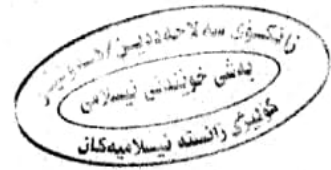 زانکۆی سەلاحەددین / هەولێر
بەشی خوێندنی ئیسلامی
کۆلیژی زانستە ئیسلامیەکان